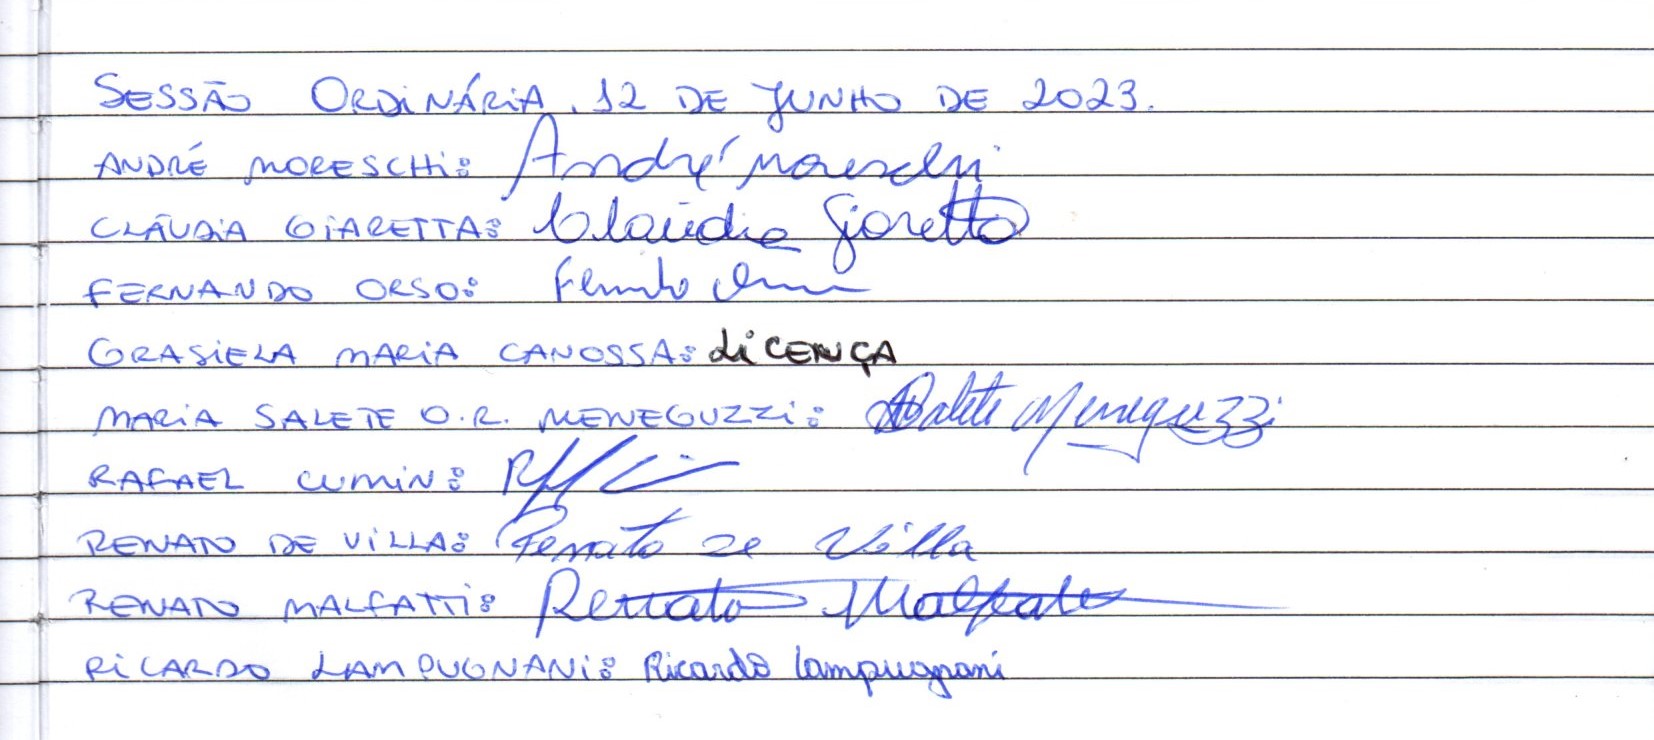 SESSÃO ORDINÁRIA. 12 DE JUNHO DE 2023.
ANDRÉ MORESCHI: André Moreschi
CLÁUDIA GIARETTA: Claudia Giaretta
FERNANDO ORSO: Fernando Orso
GRASIELA MARIA CANOSSA: LICENÇA
MARIA SALETE O.R. MENEGUZZI: Salete Meneguzzi
RAFAEL CUMIN:
RENATO DE VILLA: Renato de Villa
RENATO MALFATTI: Renato Malfatti
RICARDO LAMPUGNANI: Ricardo Lampugnani